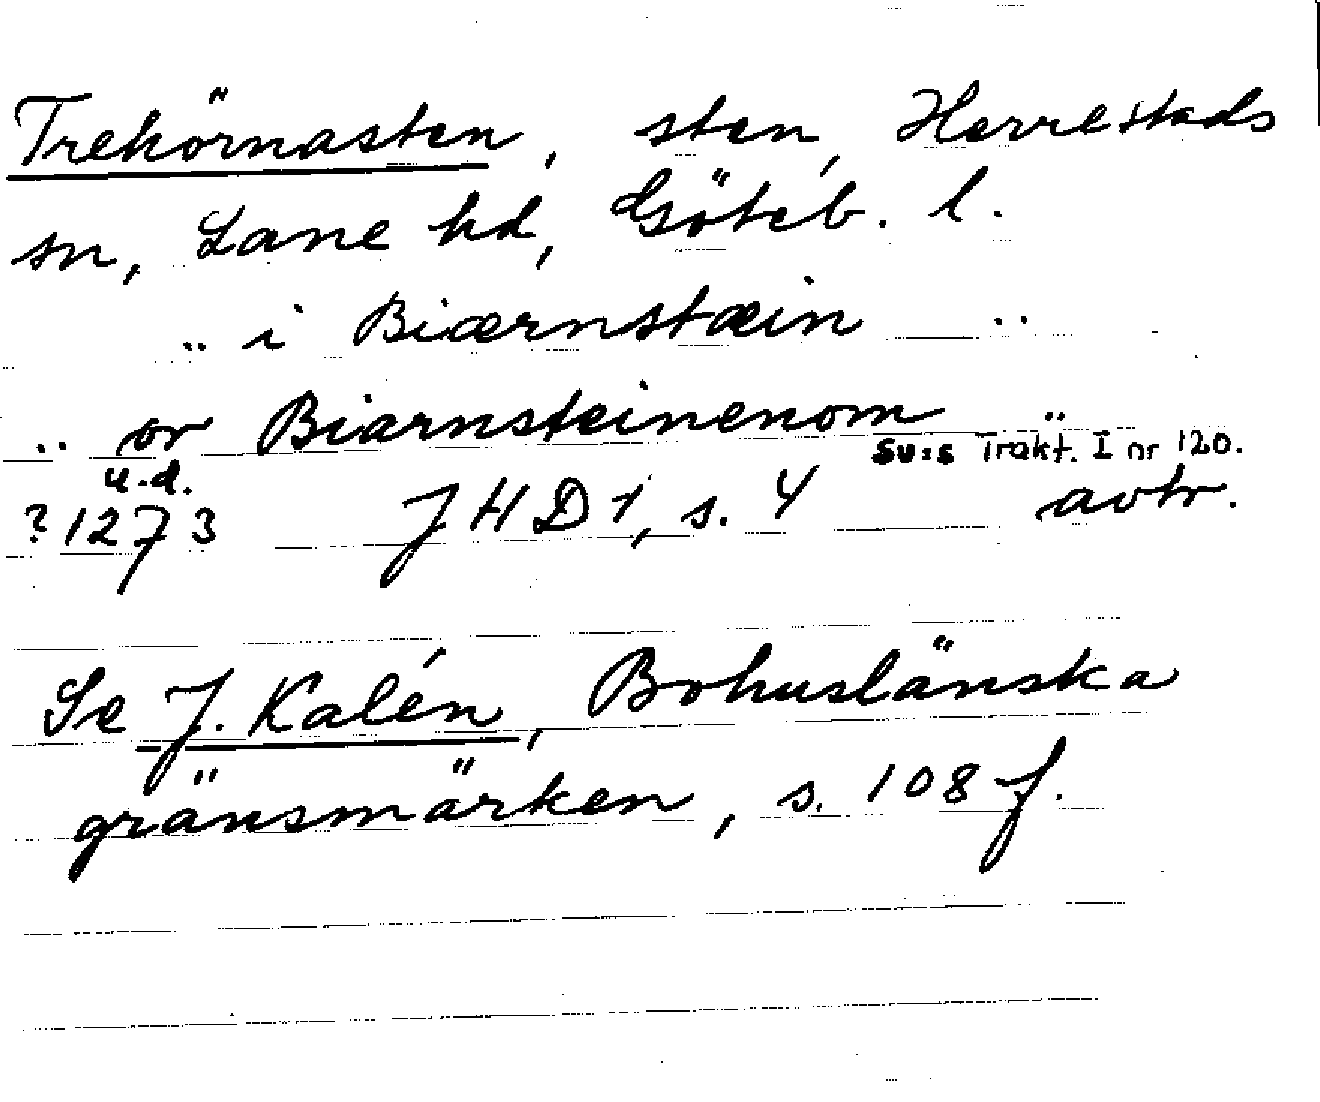 Trehörnasten, sten, Herrestads
sn, Lane hd, Göteb. l.
.. i Biærnstæin ..
.. or Biarnsteinenom ..
Sv:s Trakt. I nr 120.
u.d.
? 1273 JHD 1, s. 4 avtr.
Se J. Kalén, Bohuslänska
gränsmärken, s. 108 f.